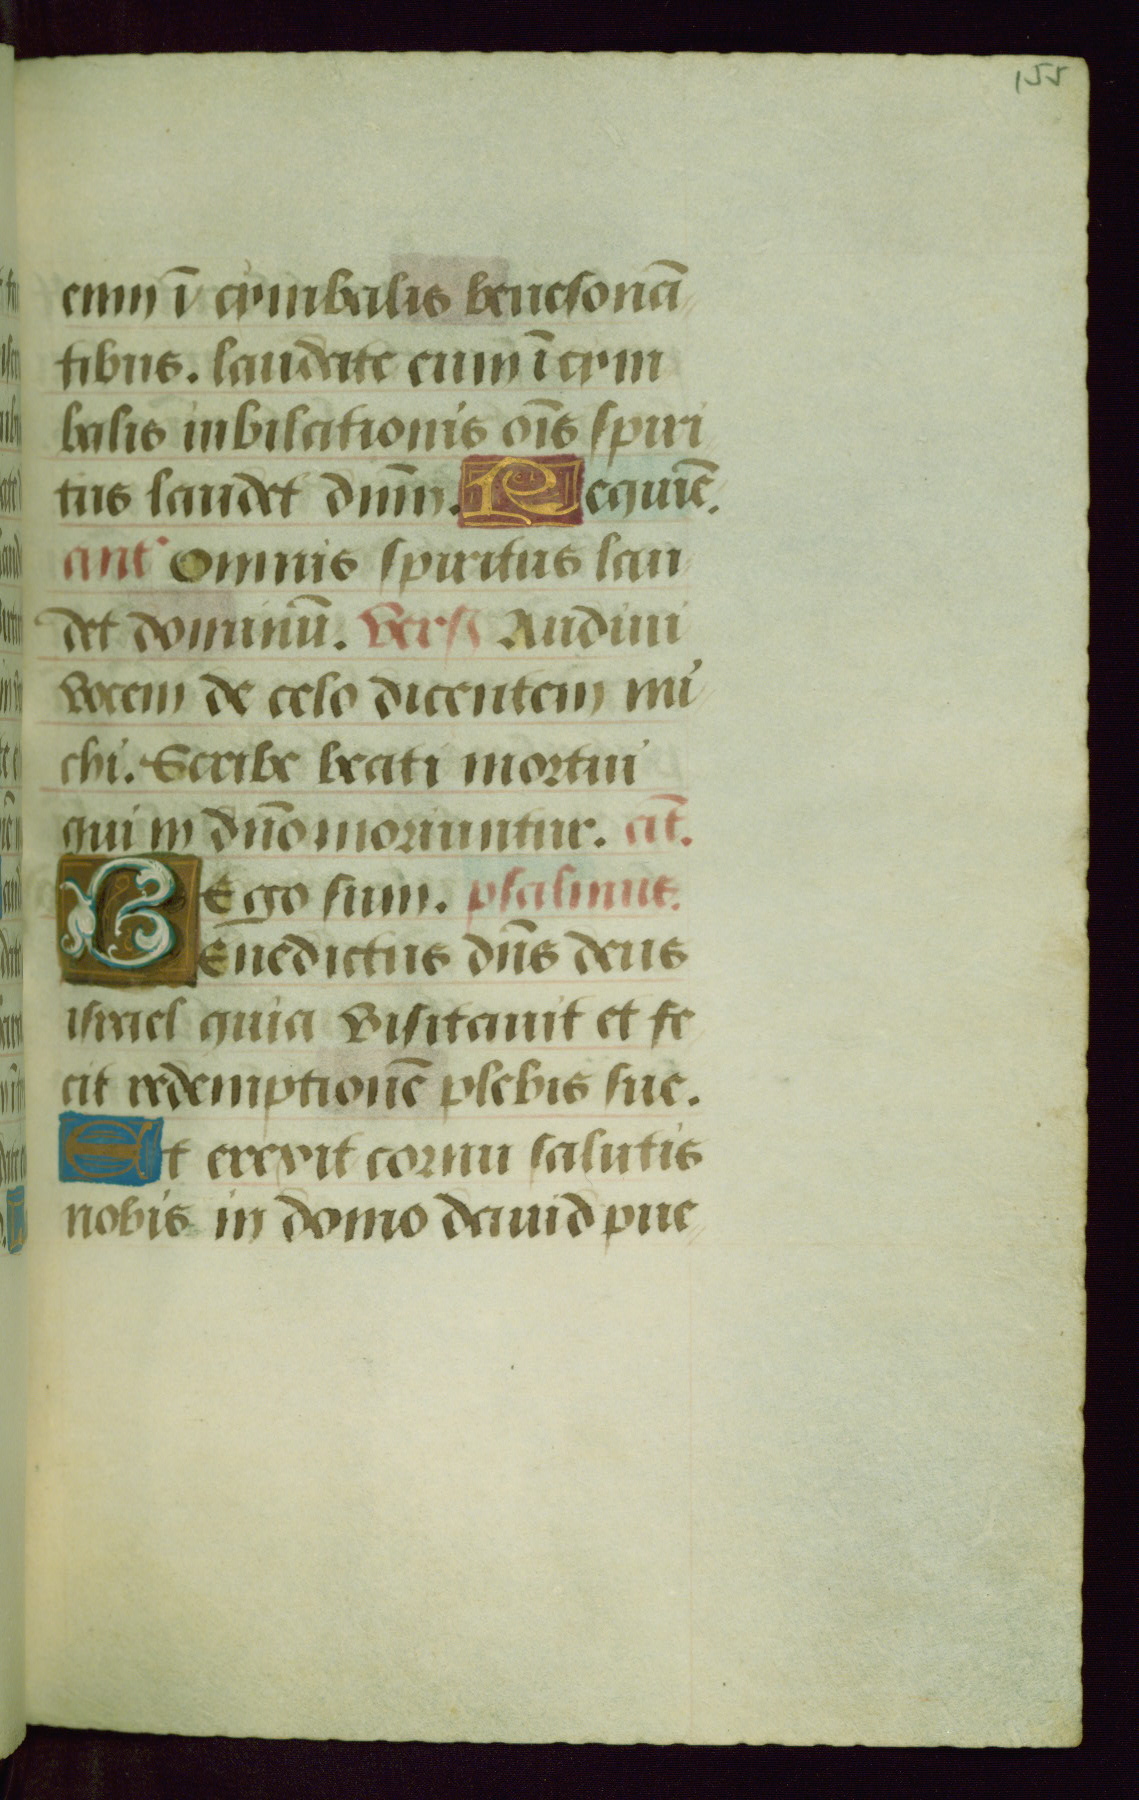 155
eum ī cymbalis benesonā
tibus. laudate eum ī cym
balis iubilationis oīs spiri
tus laudet dnm̄. Requiē.
ant' Omnis spiritus lau
det dominū. Vers Audiui
vocem de celo dicentem mi
chi. Scribe beati mortui
qui in dn̄o moriuntur. añt.
Ego sum. psalmus.
Benedictus dn̄s deus
israel quia visitauit et fe
cit redemptionē plebis sue.
Et erexit cornu salutis
nobis in domo dauid pue